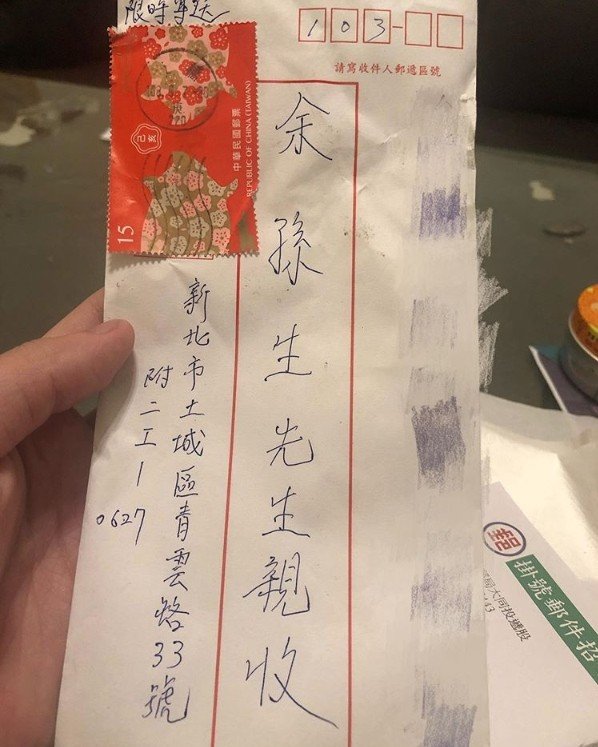 限時專送
103-
請寫收件人郵遞區號
余孫生先生親收
新北市土城區青雲路33號
附二工一
0627
15
己亥
中華民國郵票
REPUBLIC OF CHINA (TAIWAN)
掛號郵件招
郵局大同投遞股
43